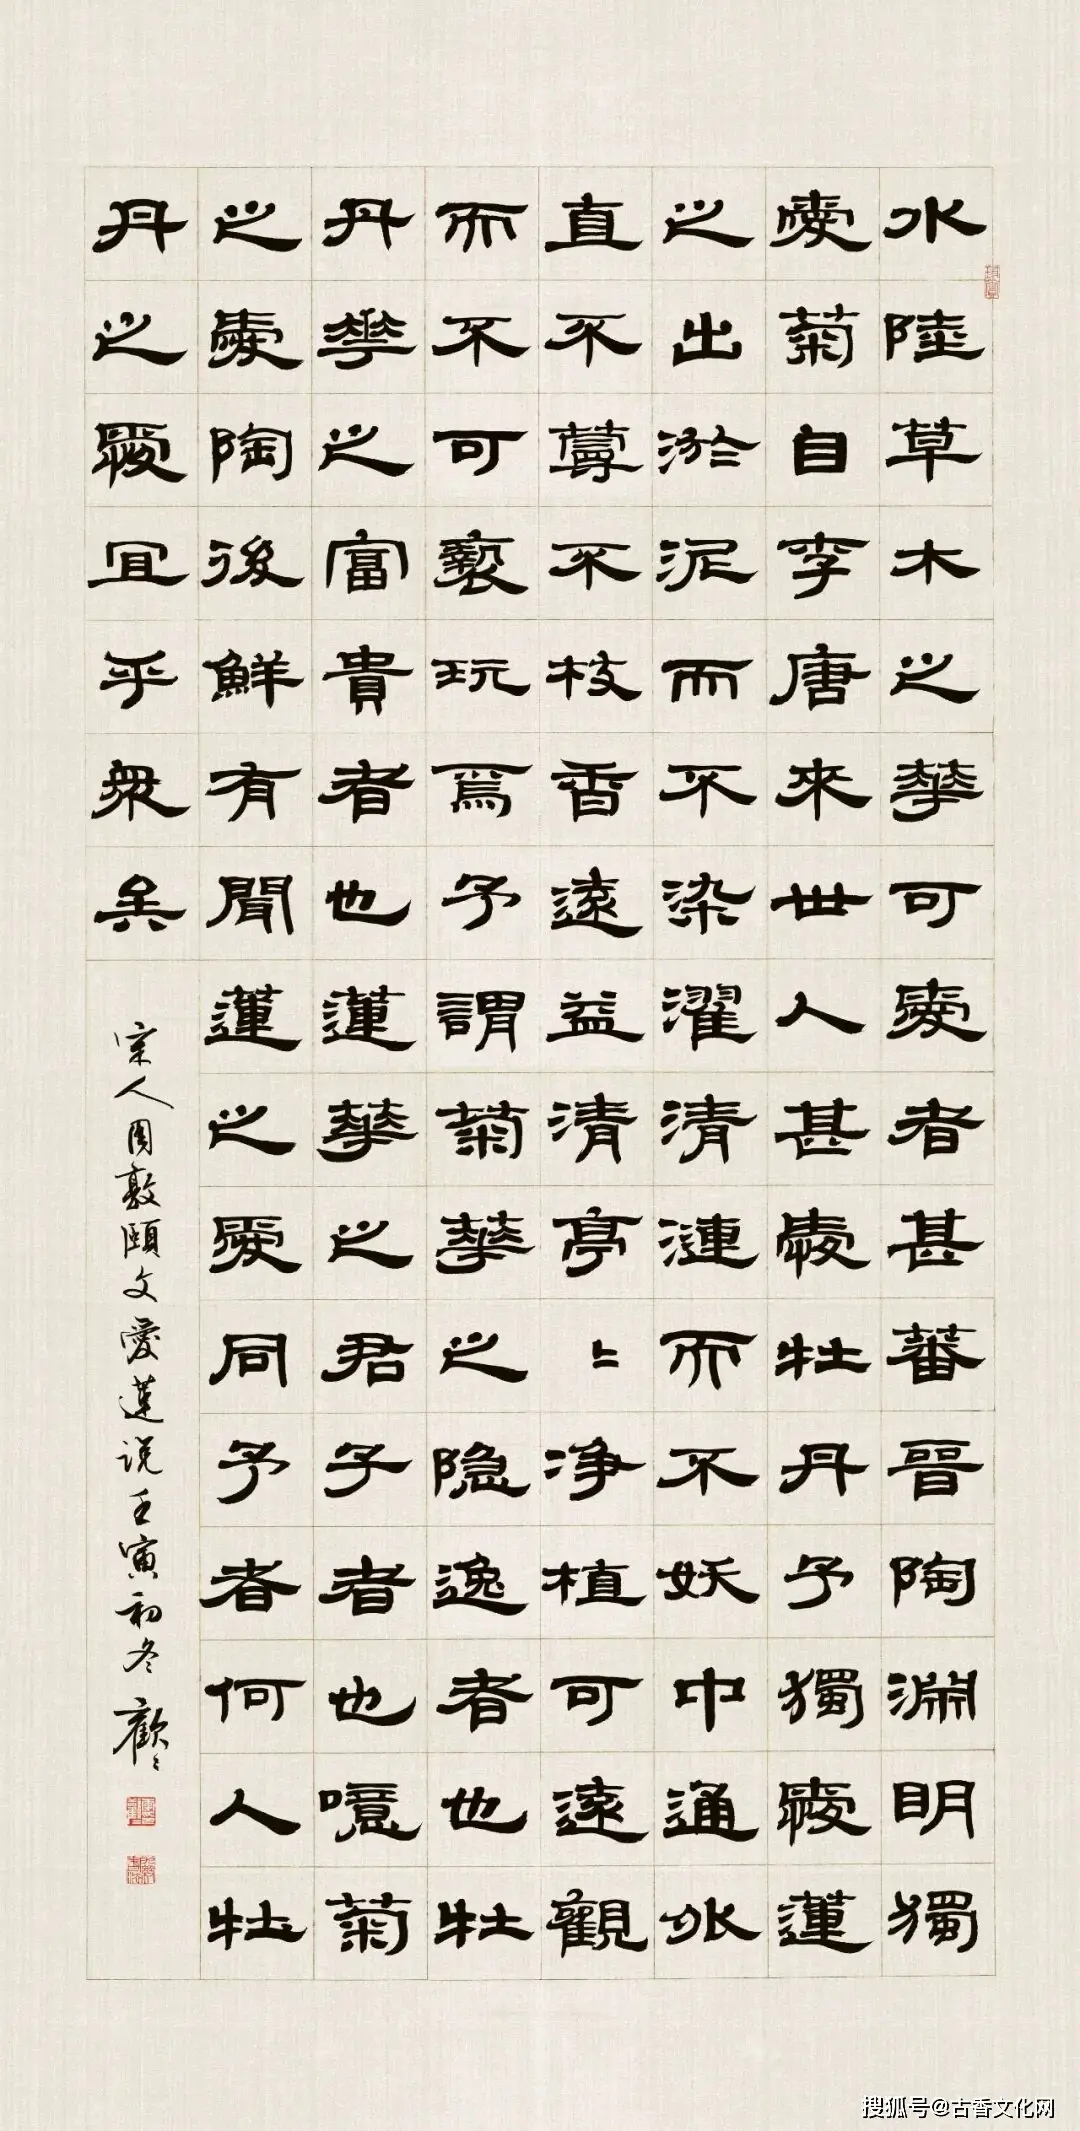 水陸草木之華可愛者甚蕃晉陶淵明獨
愛菊自李唐來世人甚愛牡丹予獨愛蓮
之出淤泥而不染濯清漣而不妖中通外
直不蔓不枝香遠益清亭〻净植可遠觀
而不可褻玩焉予謂菊華之隐逸者也牡
丹華之富貴者也蓮華之君子者也噫菊
之愛陶後鮮有聞蓮之愛同予者何人牡
丹之愛宜乎眾矣
宋人周敦頤文愛蓮说壬寅初冬歡〻
搜狐号@古香文化网